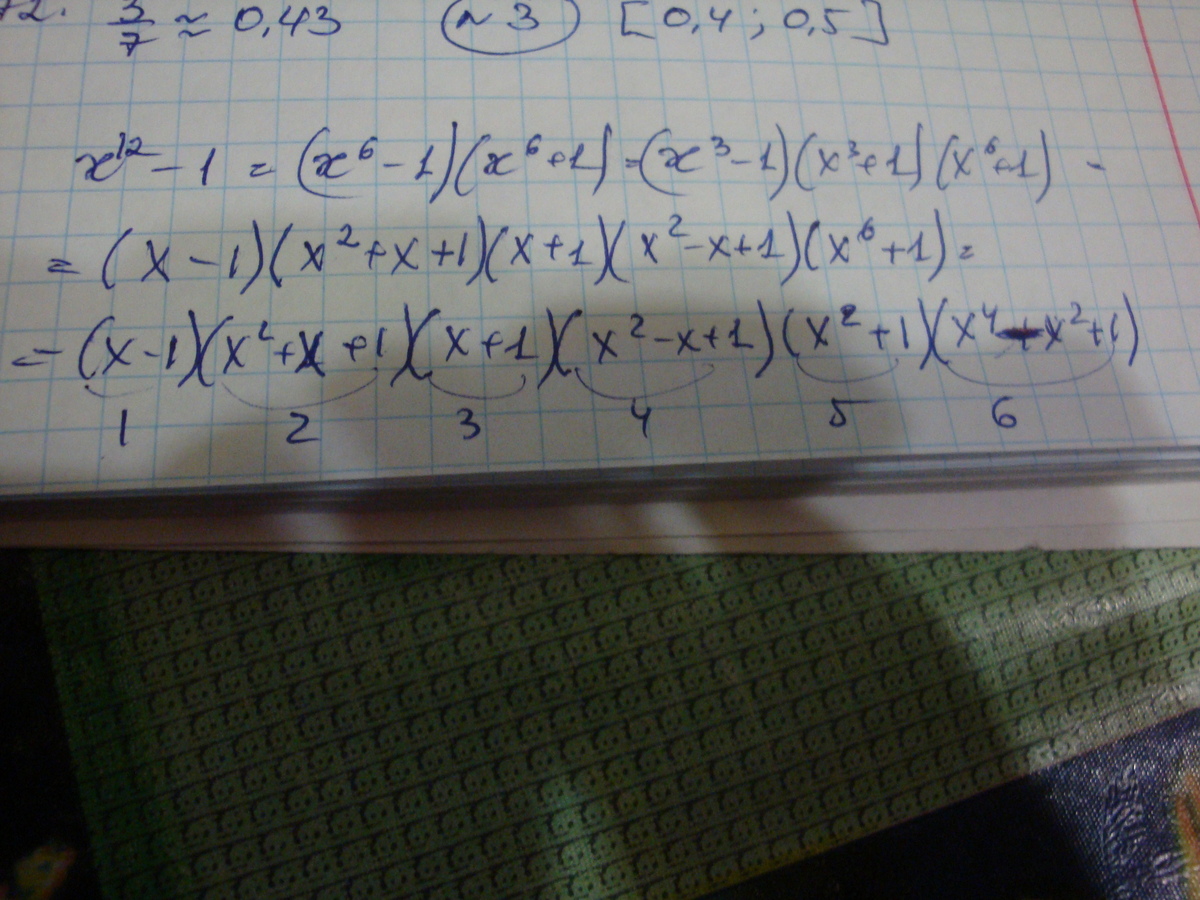 72. 3/7 ≈ 0,43 ~3 [0,4; 0,5]
x¹² - 1 = (x⁶ - 1)(x⁶ + 1) = (x³ - 1)(x³ + 1)(x⁶ + 1) -
= (x - 1)(x² + x + 1)(x + 1)(x² - x + 1)(x⁶ + 1) =
= (x - 1)(x² + x + 1)(x + 1)(x² - x + 1)(x² + 1)(x⁴ - x² + 1)
1 2 3 4 5 6